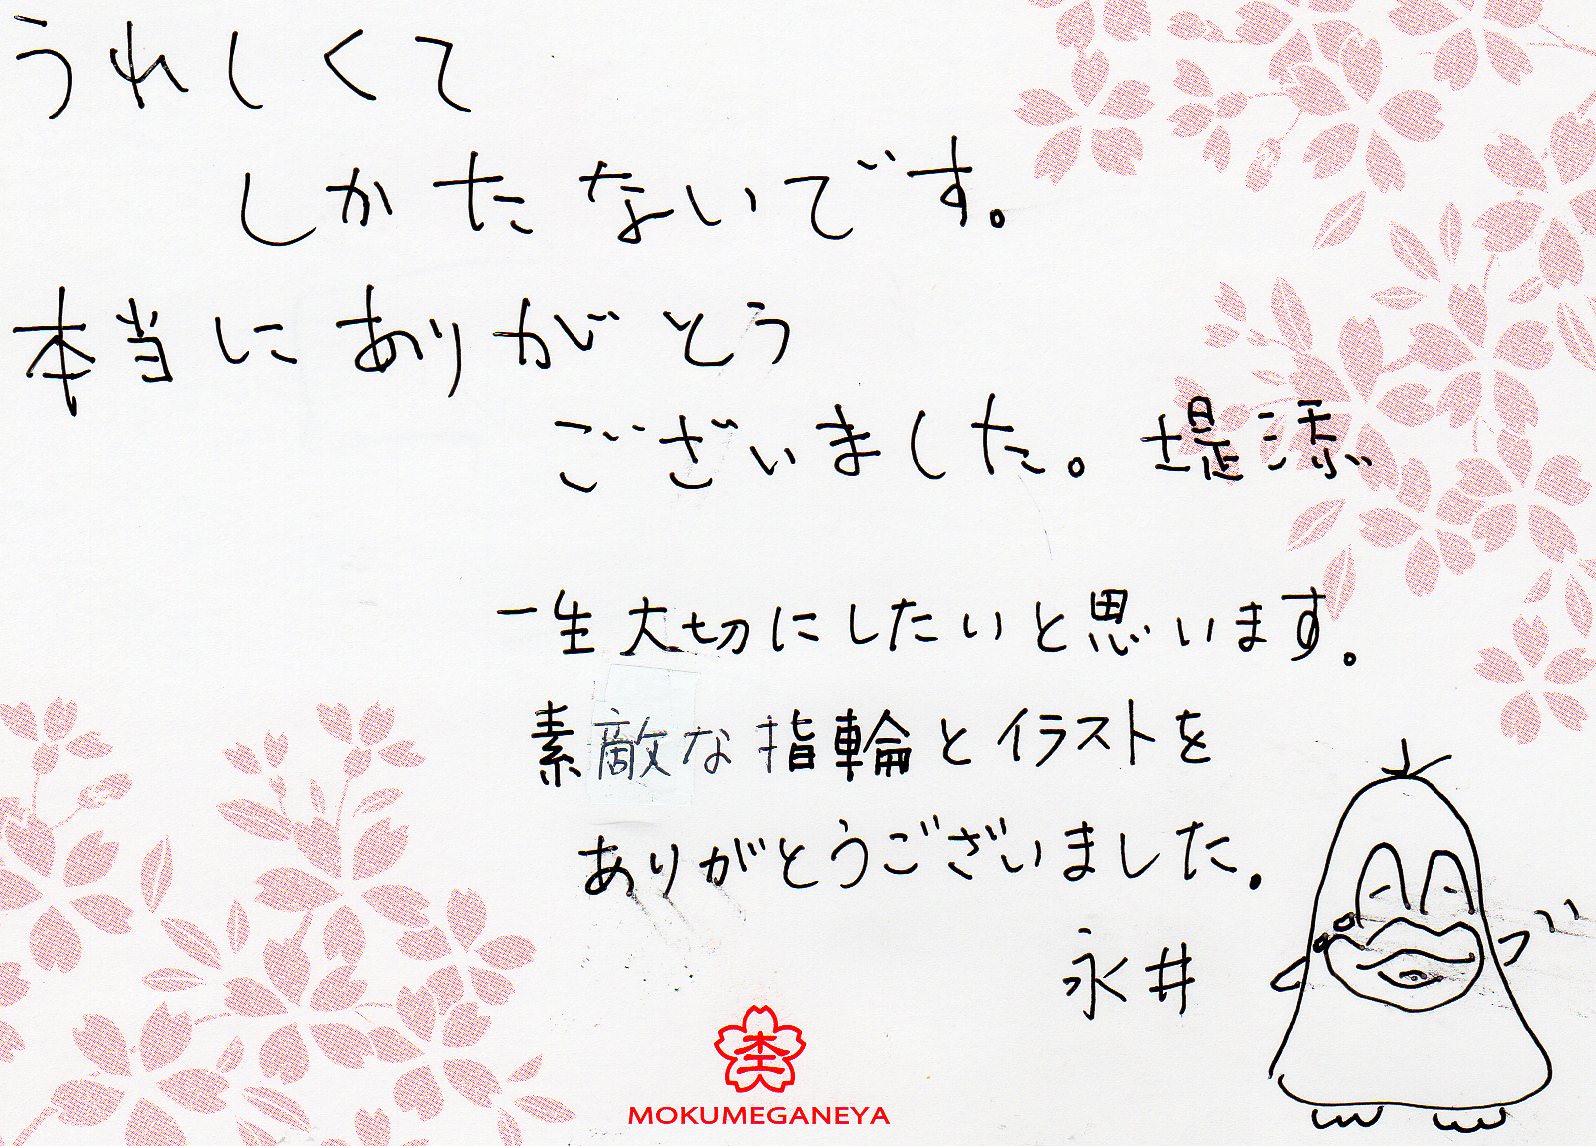 うれしくて
しかたないです。
本当にありがとう
ございました。堤添
一生大切にしたいと思います。
素敵な指輪とイラストを
ありがとうございました。
永井
MOKUMEGANEYA